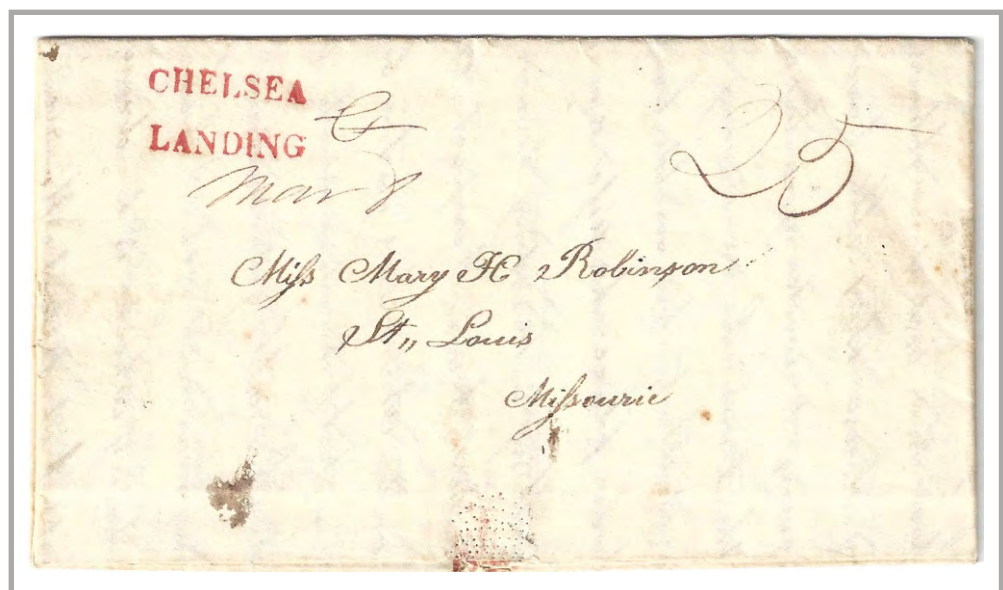 CHELSEA
LANDING Ct
Mar 8
25
Miſs Mary H Robinson
St,, Louis
Miſsourie